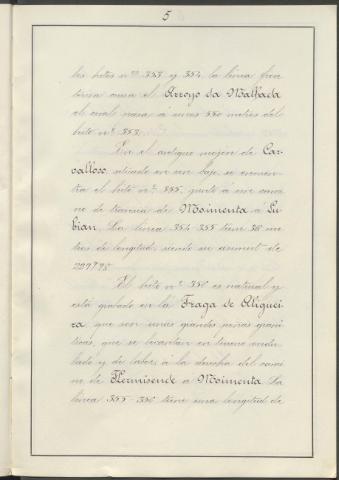 5
los hitos nos 353 y 354 la línea fron
teriza cruza el Arroyo da Malhada
el cual pasa á unos 550 metros del
hito nº 353.
En el antiguo mojón de Car-
valloso, situado en un bajo, se encuen-
tra el hito nº 355, junto á un cami
no de travesía de Moimenta á Lu
bian. La línea 354-355 tiene
tros de longitud, siendo su azimut de
El hito nº 356 es natural y
está grabado en la Fraga de Aliguei
ra, que son unas grandes peñas graní
ticas, que se levantan en terreno ondu
lado y de labor, á la derecha del cami
no de Hermisende á Moimenta. La
línea 355-356 tiene una longitud de